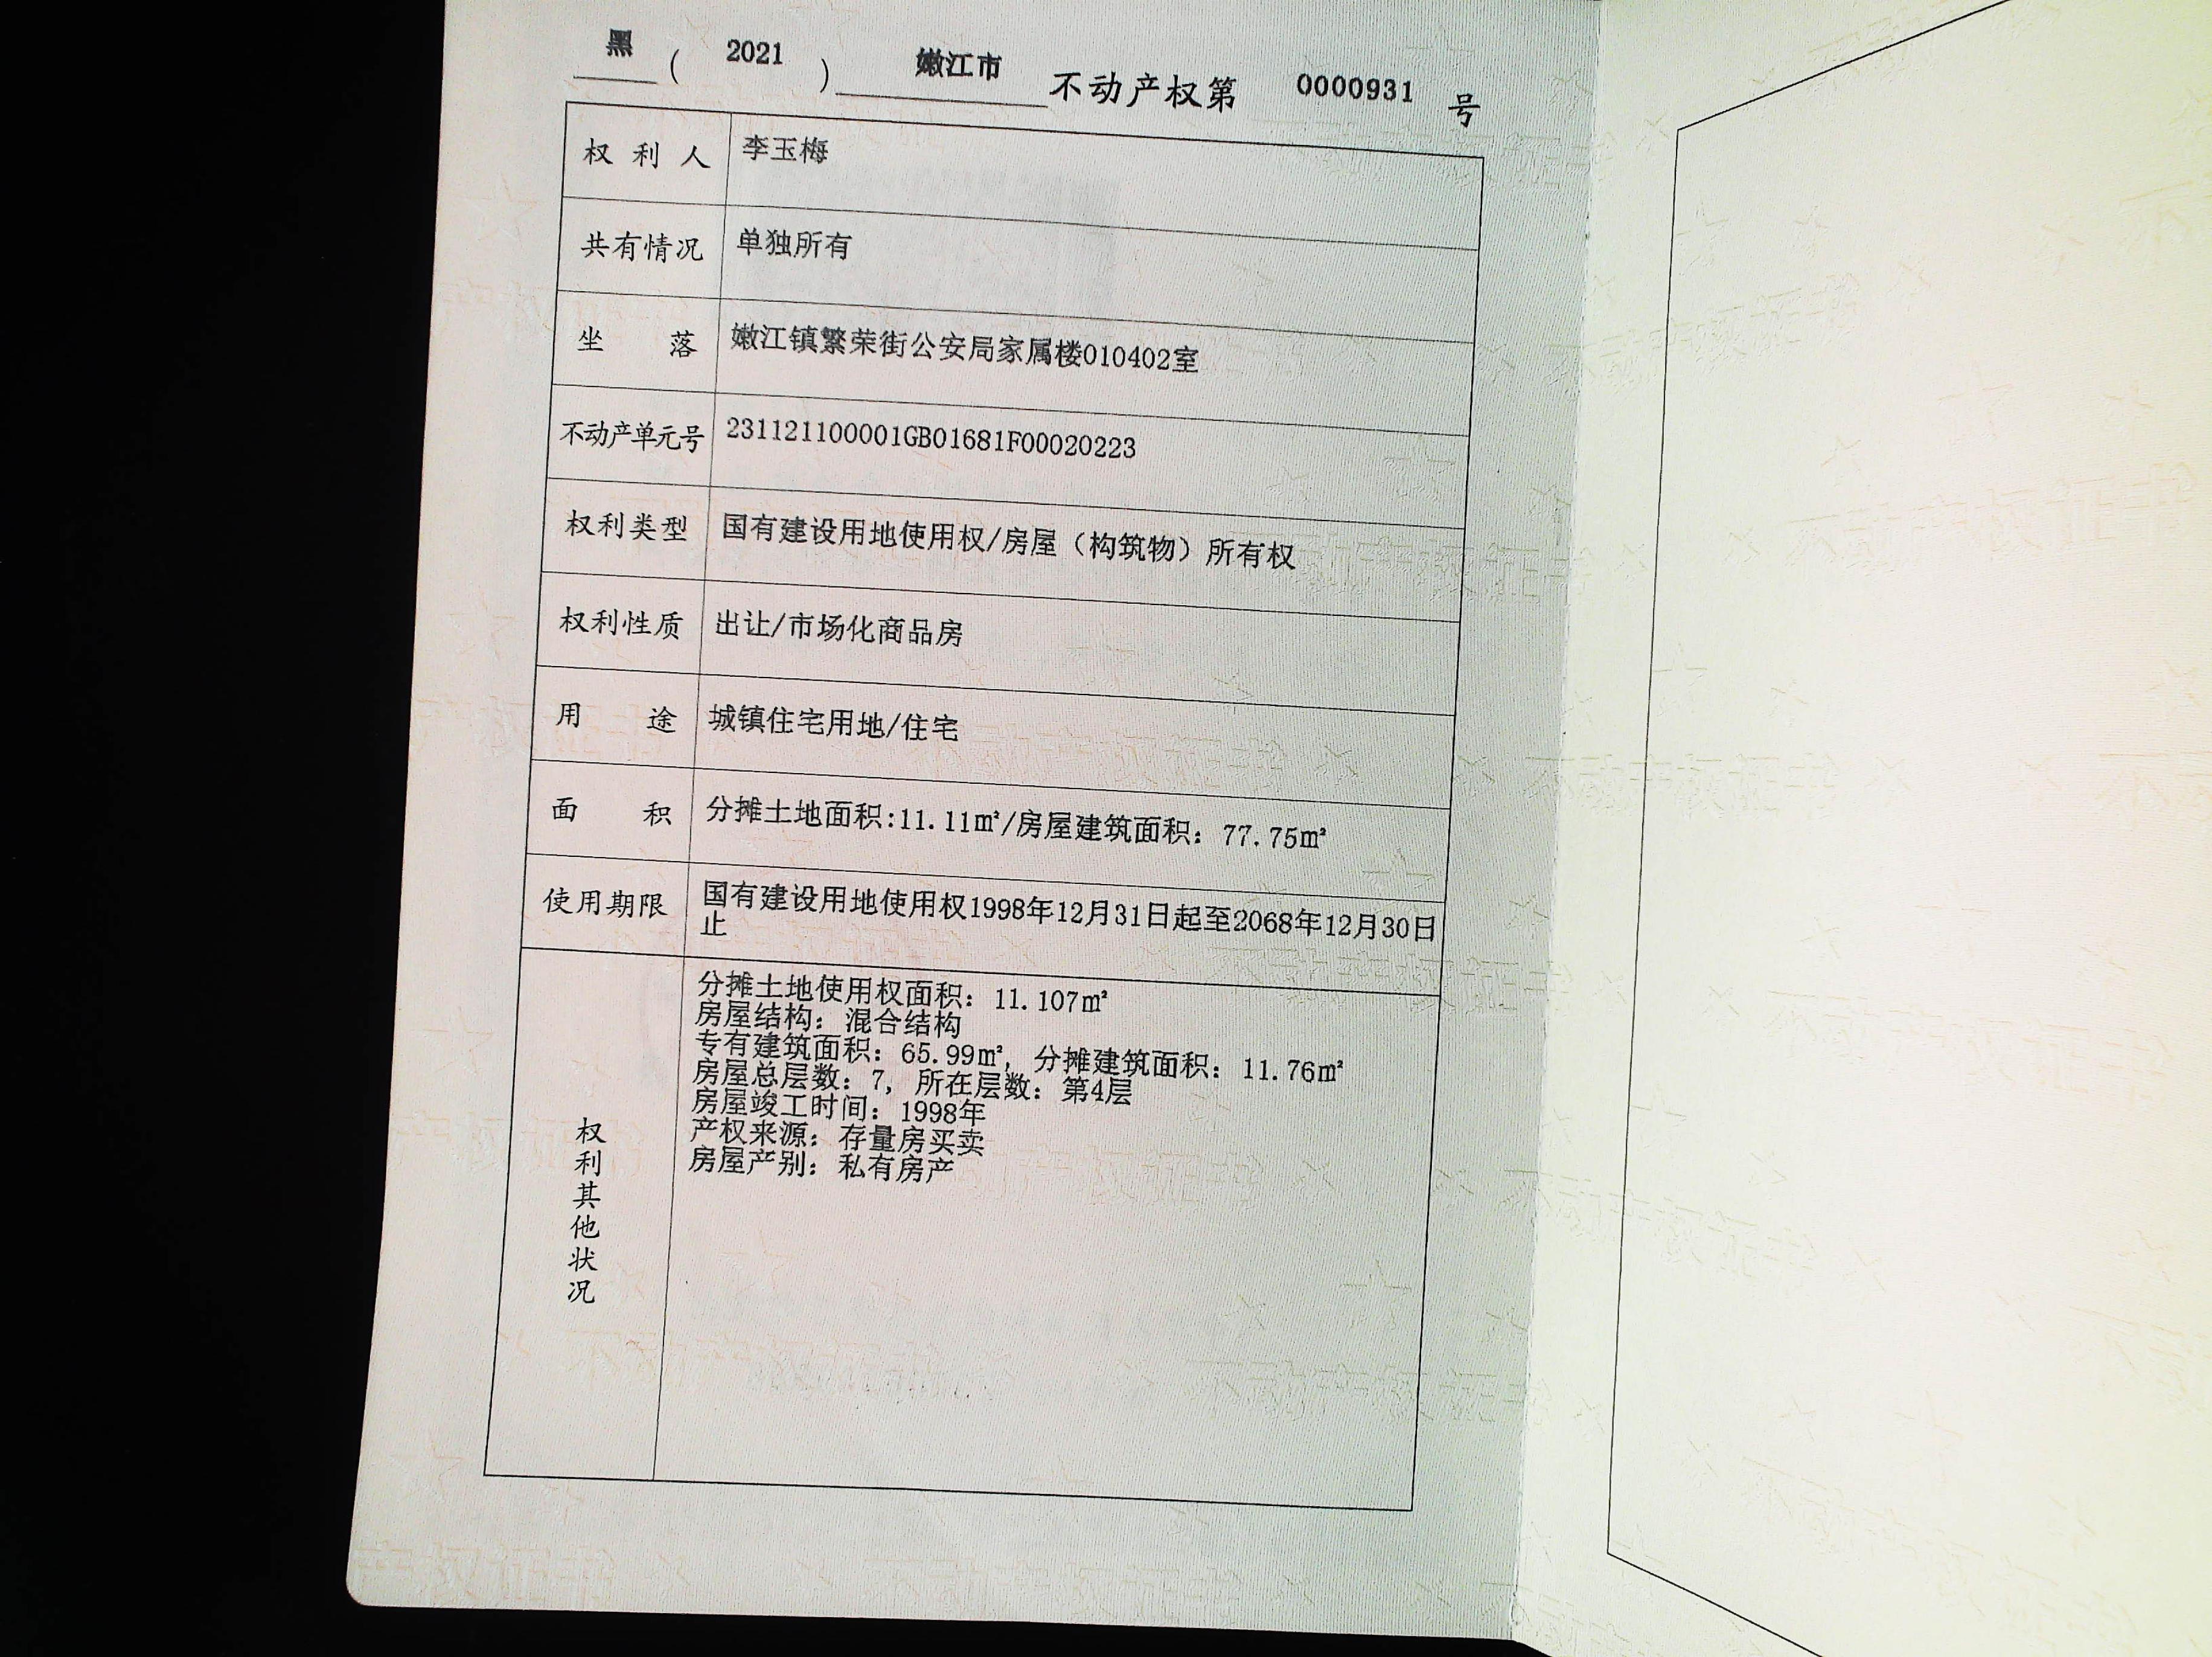 黑 ( 2021 ) 嫩江市 不动产权第 0000931 号
权利人 李玉梅
共有情况 单独所有
坐落 嫩江镇繁荣街公安局家属楼010402室
不动产单元号 231121100001GB01681F00020223
权利类型 国有建设用地使用权/房屋（构筑物）所有权
权利性质 出让/市场化商品房
用途 城镇住宅用地/住宅
面积 分摊土地面积:11.11㎡/房屋建筑面积：77.75㎡
使用期限 国有建设用地使用权1998年12月31日起至2068年12月30日
止
权利其他状况
分摊土地使用权面积：11.107㎡
房屋结构：混合结构
专有建筑面积：65.99㎡，分摊建筑面积：11.76㎡
房屋总层数：7，所在层数：第4层
房屋竣工时间：1998年
产权来源：存量房买卖
房屋产别：私有房产